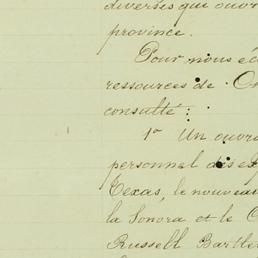 diverses qui ouvr
province.
Pour nous éc
ressources de
consulté :
1° Un ouvra
personnel des ex
Texas, le nouveau
la Sonora et le C
Russell Bartle